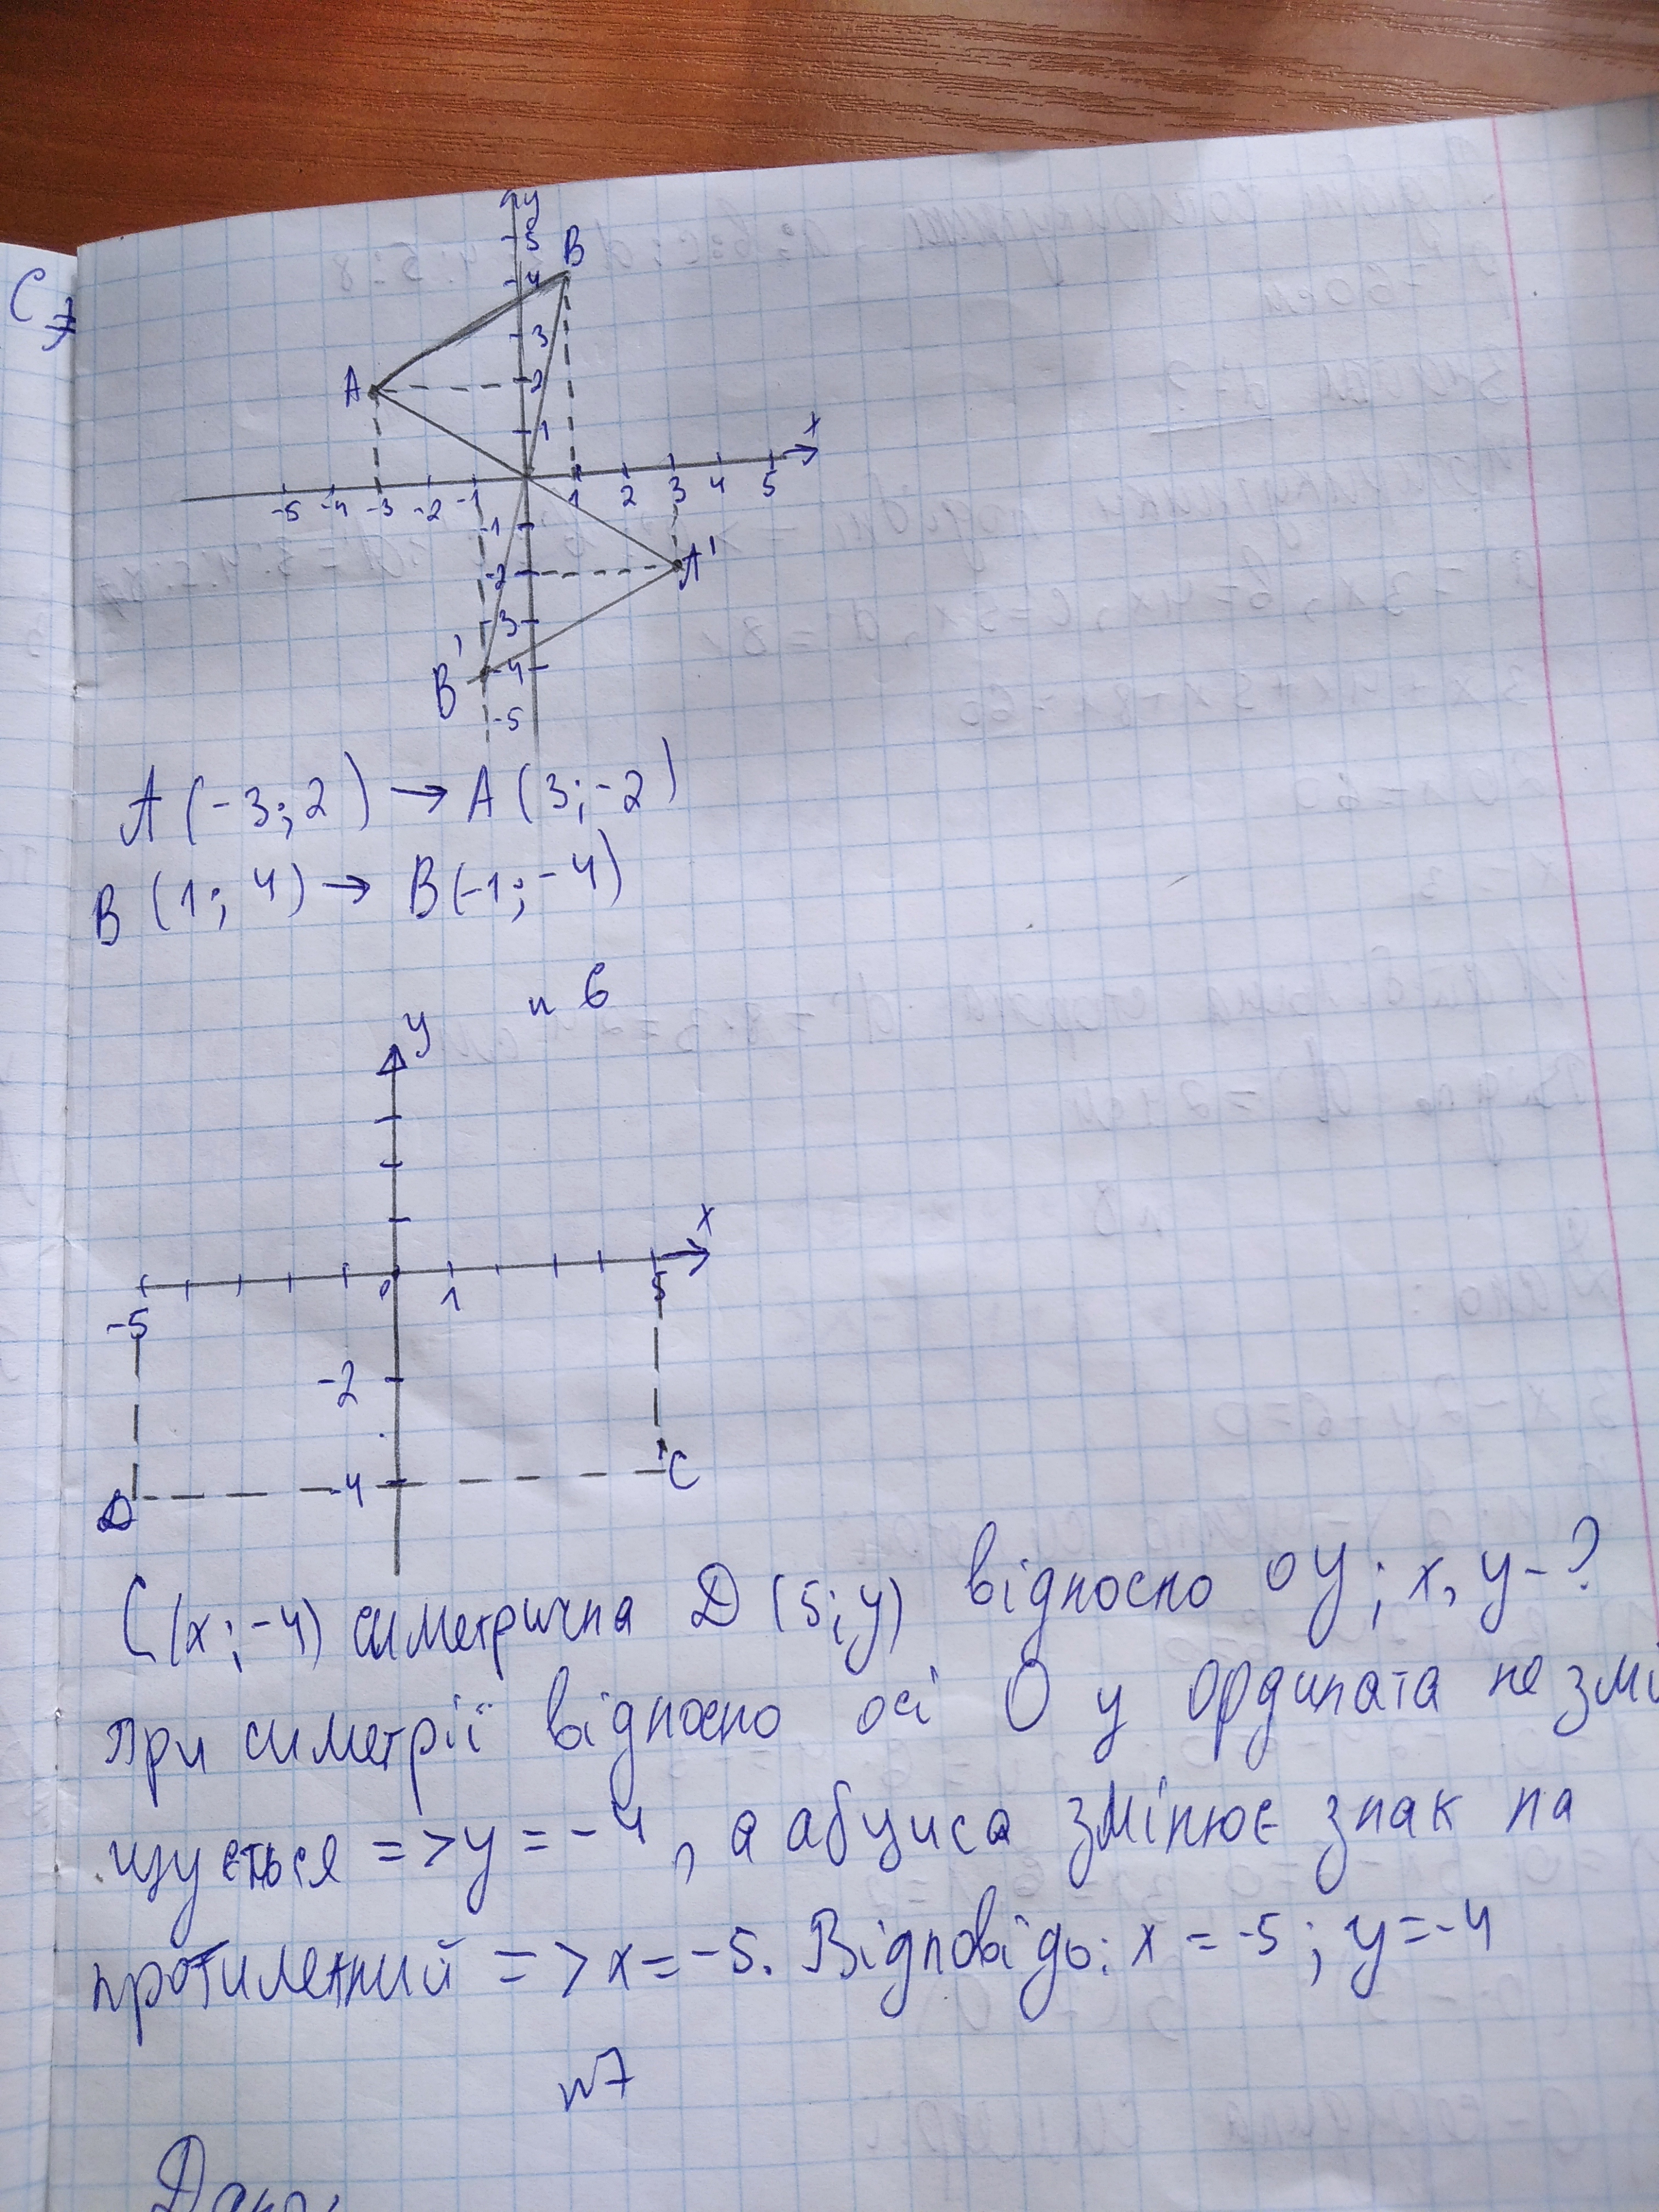 y
5
B
4
3
A
2
1
x
-5 -4 -3 -2 -1 1 2 3 4 5
-1
-2
A'
-3
B'
-4
-5
A (-3; 2) → A (3; -2)
B (1; 4) → B (-1; -4)
n 6
y
x
-5 0 1 5
-2
-4
D C
C (x; -4) симетрична D (5; y) відносно OY; x, y - ?
при симетрії відносно осі O y ордината не змі
щується => y = -4, а абциса змінює знак на
протилежний => x = -5. Відповідь: x = -5; y = -4
n7
Дано: